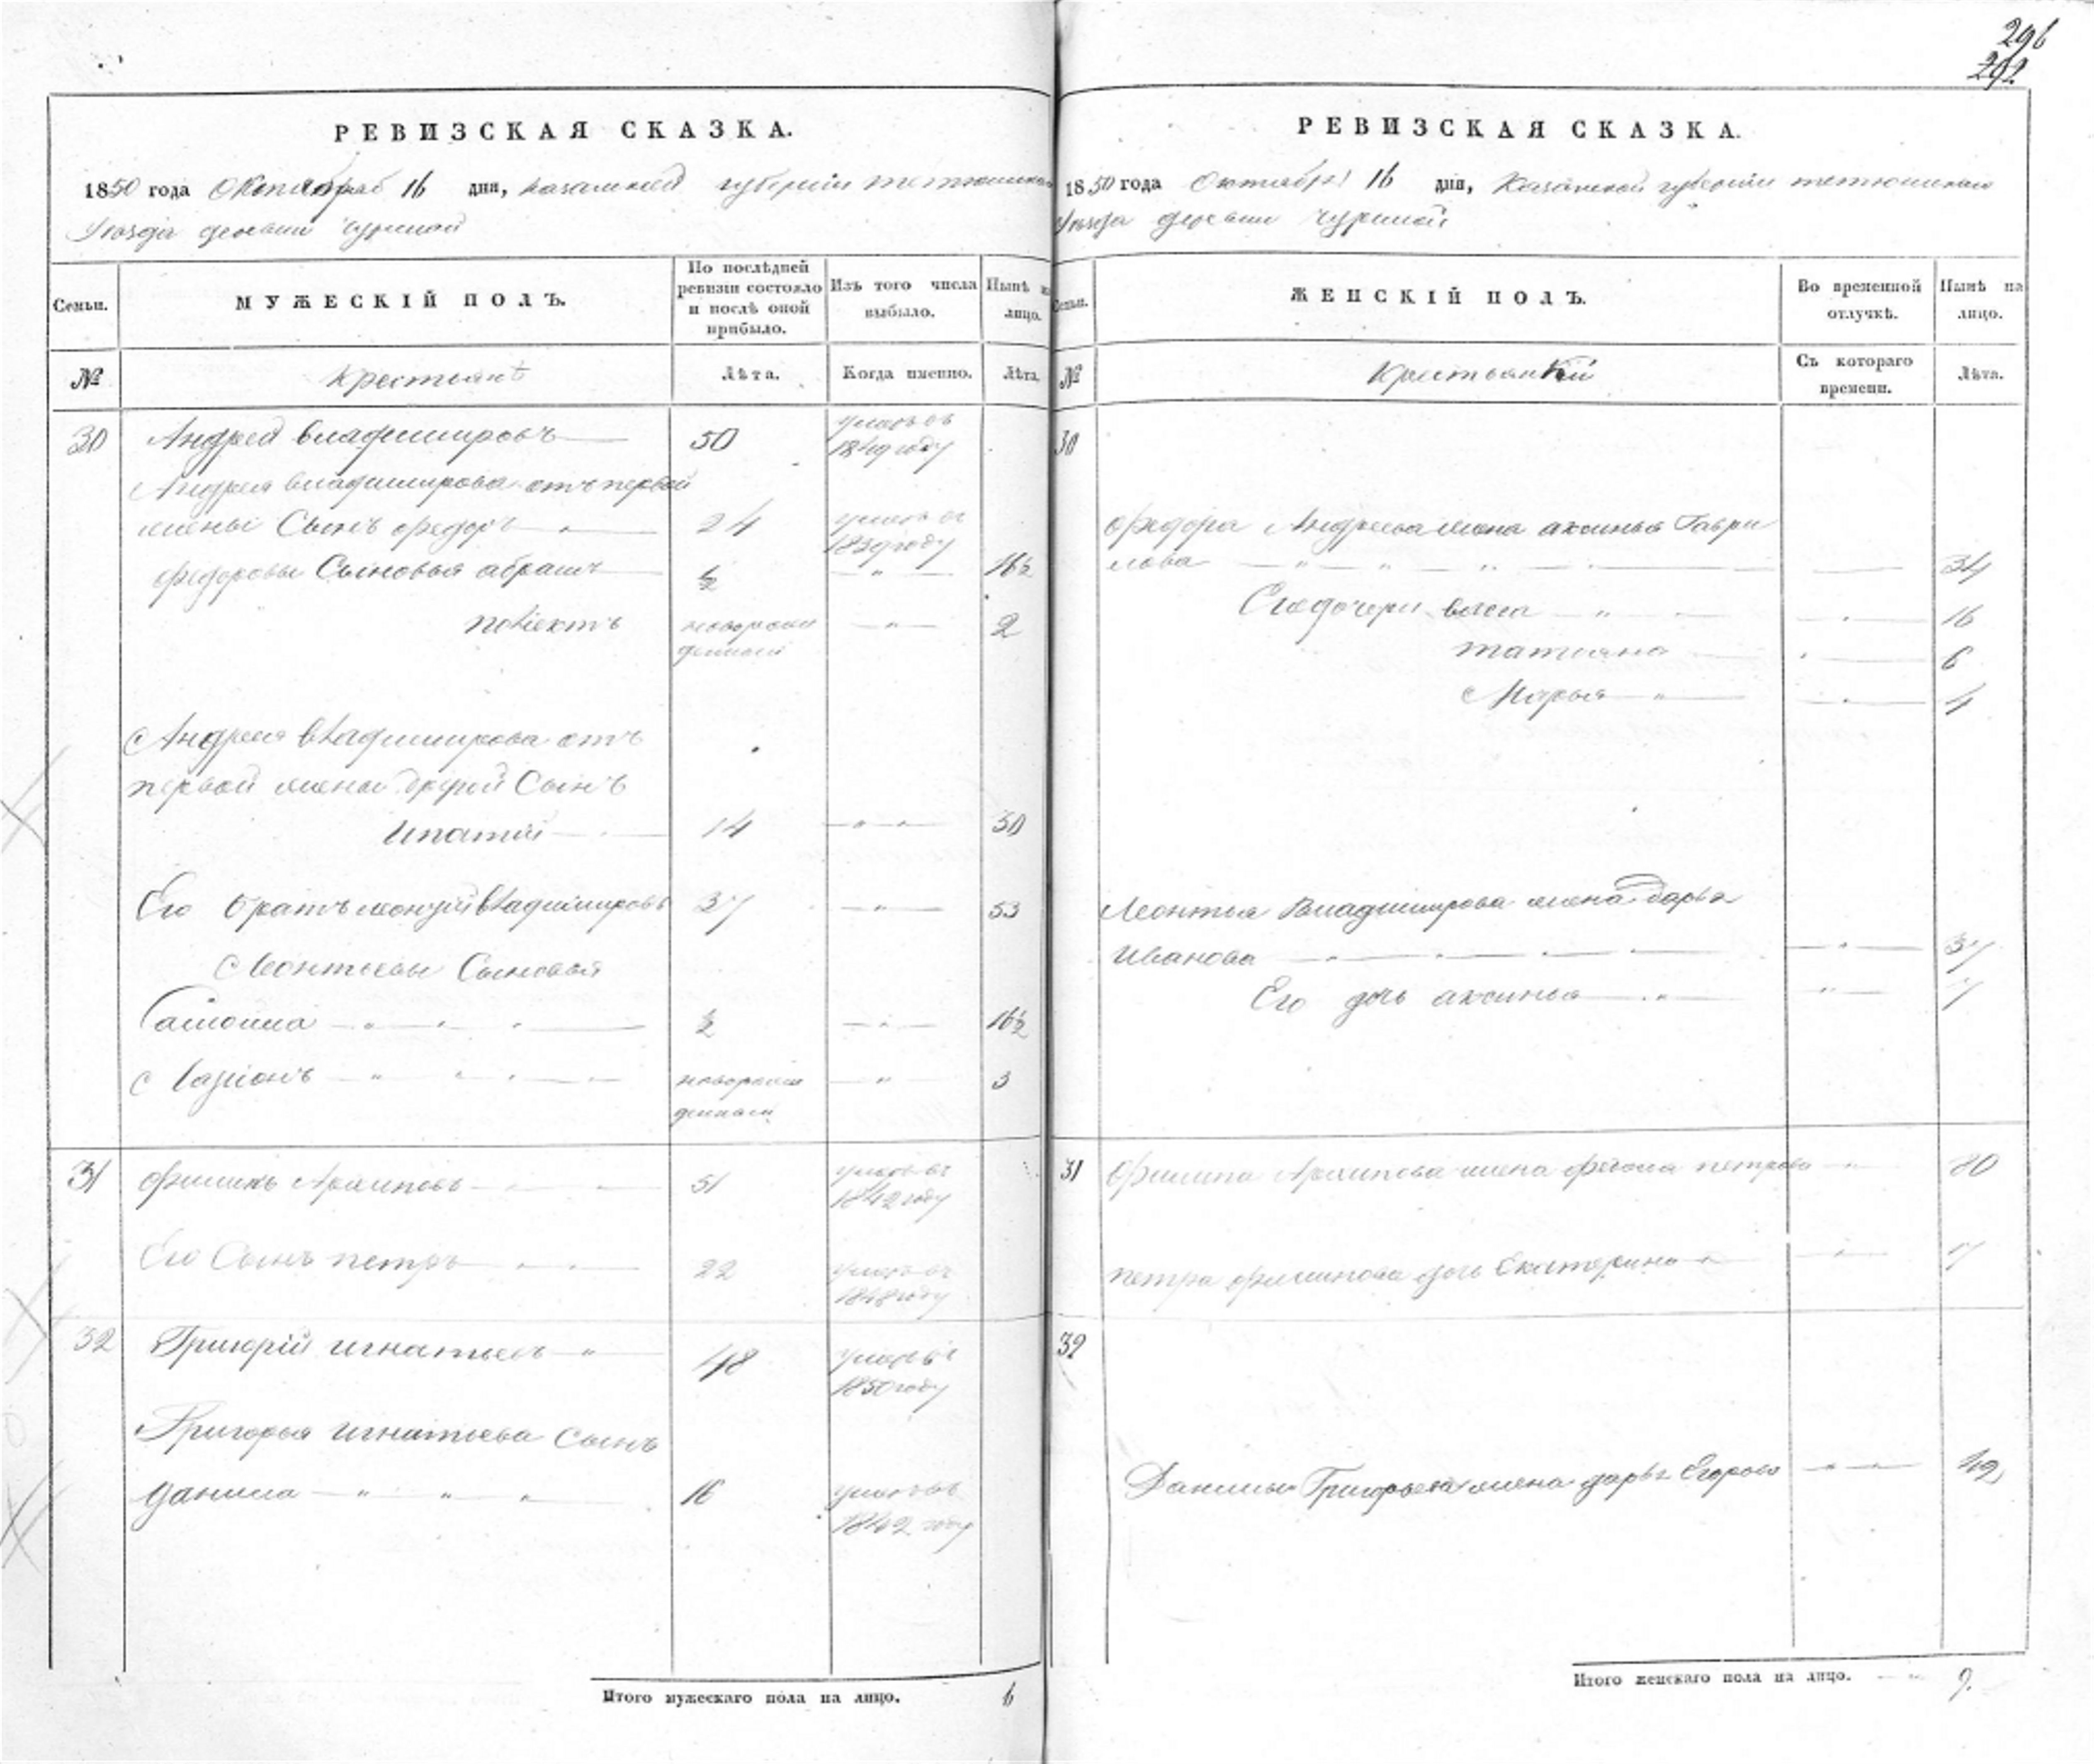 296
292
РЕВИЗСКАЯ СКАЗКА.
1850 года Октября 16 дня, Казанской губернии тетюшскаго
Уезда деревни Чуриной
Семьи.
МУЖЕСКІЙ ПОЛЪ.
По послѣдней ревизіи состояло и послѣ оной прибыло.
Изъ того числа выбыло.
Нынѣ на лицо.
№
Крестьянѣ
Лѣта.
Когда именно.
Лѣта.
30 Андрей владимировъ 50 умеръ въ 1849 году
Андрея владимирова отъ первой
жены Сынъ федоръ 24 умеръ въ 1839 году
федоровы Сыновья абрамъ ½ 16½
новорожденный 2
Андрея владимирова отъ
первой жены другой Сынъ
Ипатий 14 30
Его братъ леонтий владимировъ 37 53
Леонтьевы Сыновья
½ 16½
Ларионъ новорожденный 3
31 филипъ Архиповъ 51 умеръ въ 1842 году
Его Сынъ петръ 22 умеръ въ 1848 году
32 Григорій игнатьевъ 48 умеръ въ 1850 году
Григорья игнатьева Сынъ
данила 16 умеръ въ 1842 году
Итого мужескаго пола на лицо. 6
РЕВИЗСКАЯ СКАЗКА.
1850 года Октября 16 дня, Казанской губернии тетюшскаго
Уезда деревни Чуриной
Семьи.
ЖЕНСКІЙ ПОЛЪ.
Во временной отлучкѣ.
Нынѣ на лицо.
№
Крестьянкий
Съ котораго времени.
Лѣта.
30
федора Андреева жена аксинья Гаври
лова 34
16
татияна 6
Марья 4
Леонтья Владимирова жена дарья
Иванова 37
Его дочь аксинья 7
31 филипа Архипова жена петрова 80
петра филипова дочь Екатерина 7
32
Данилы Григорьева жена дарья Егорова 49
Итого женскаго пола на лицо. 9.